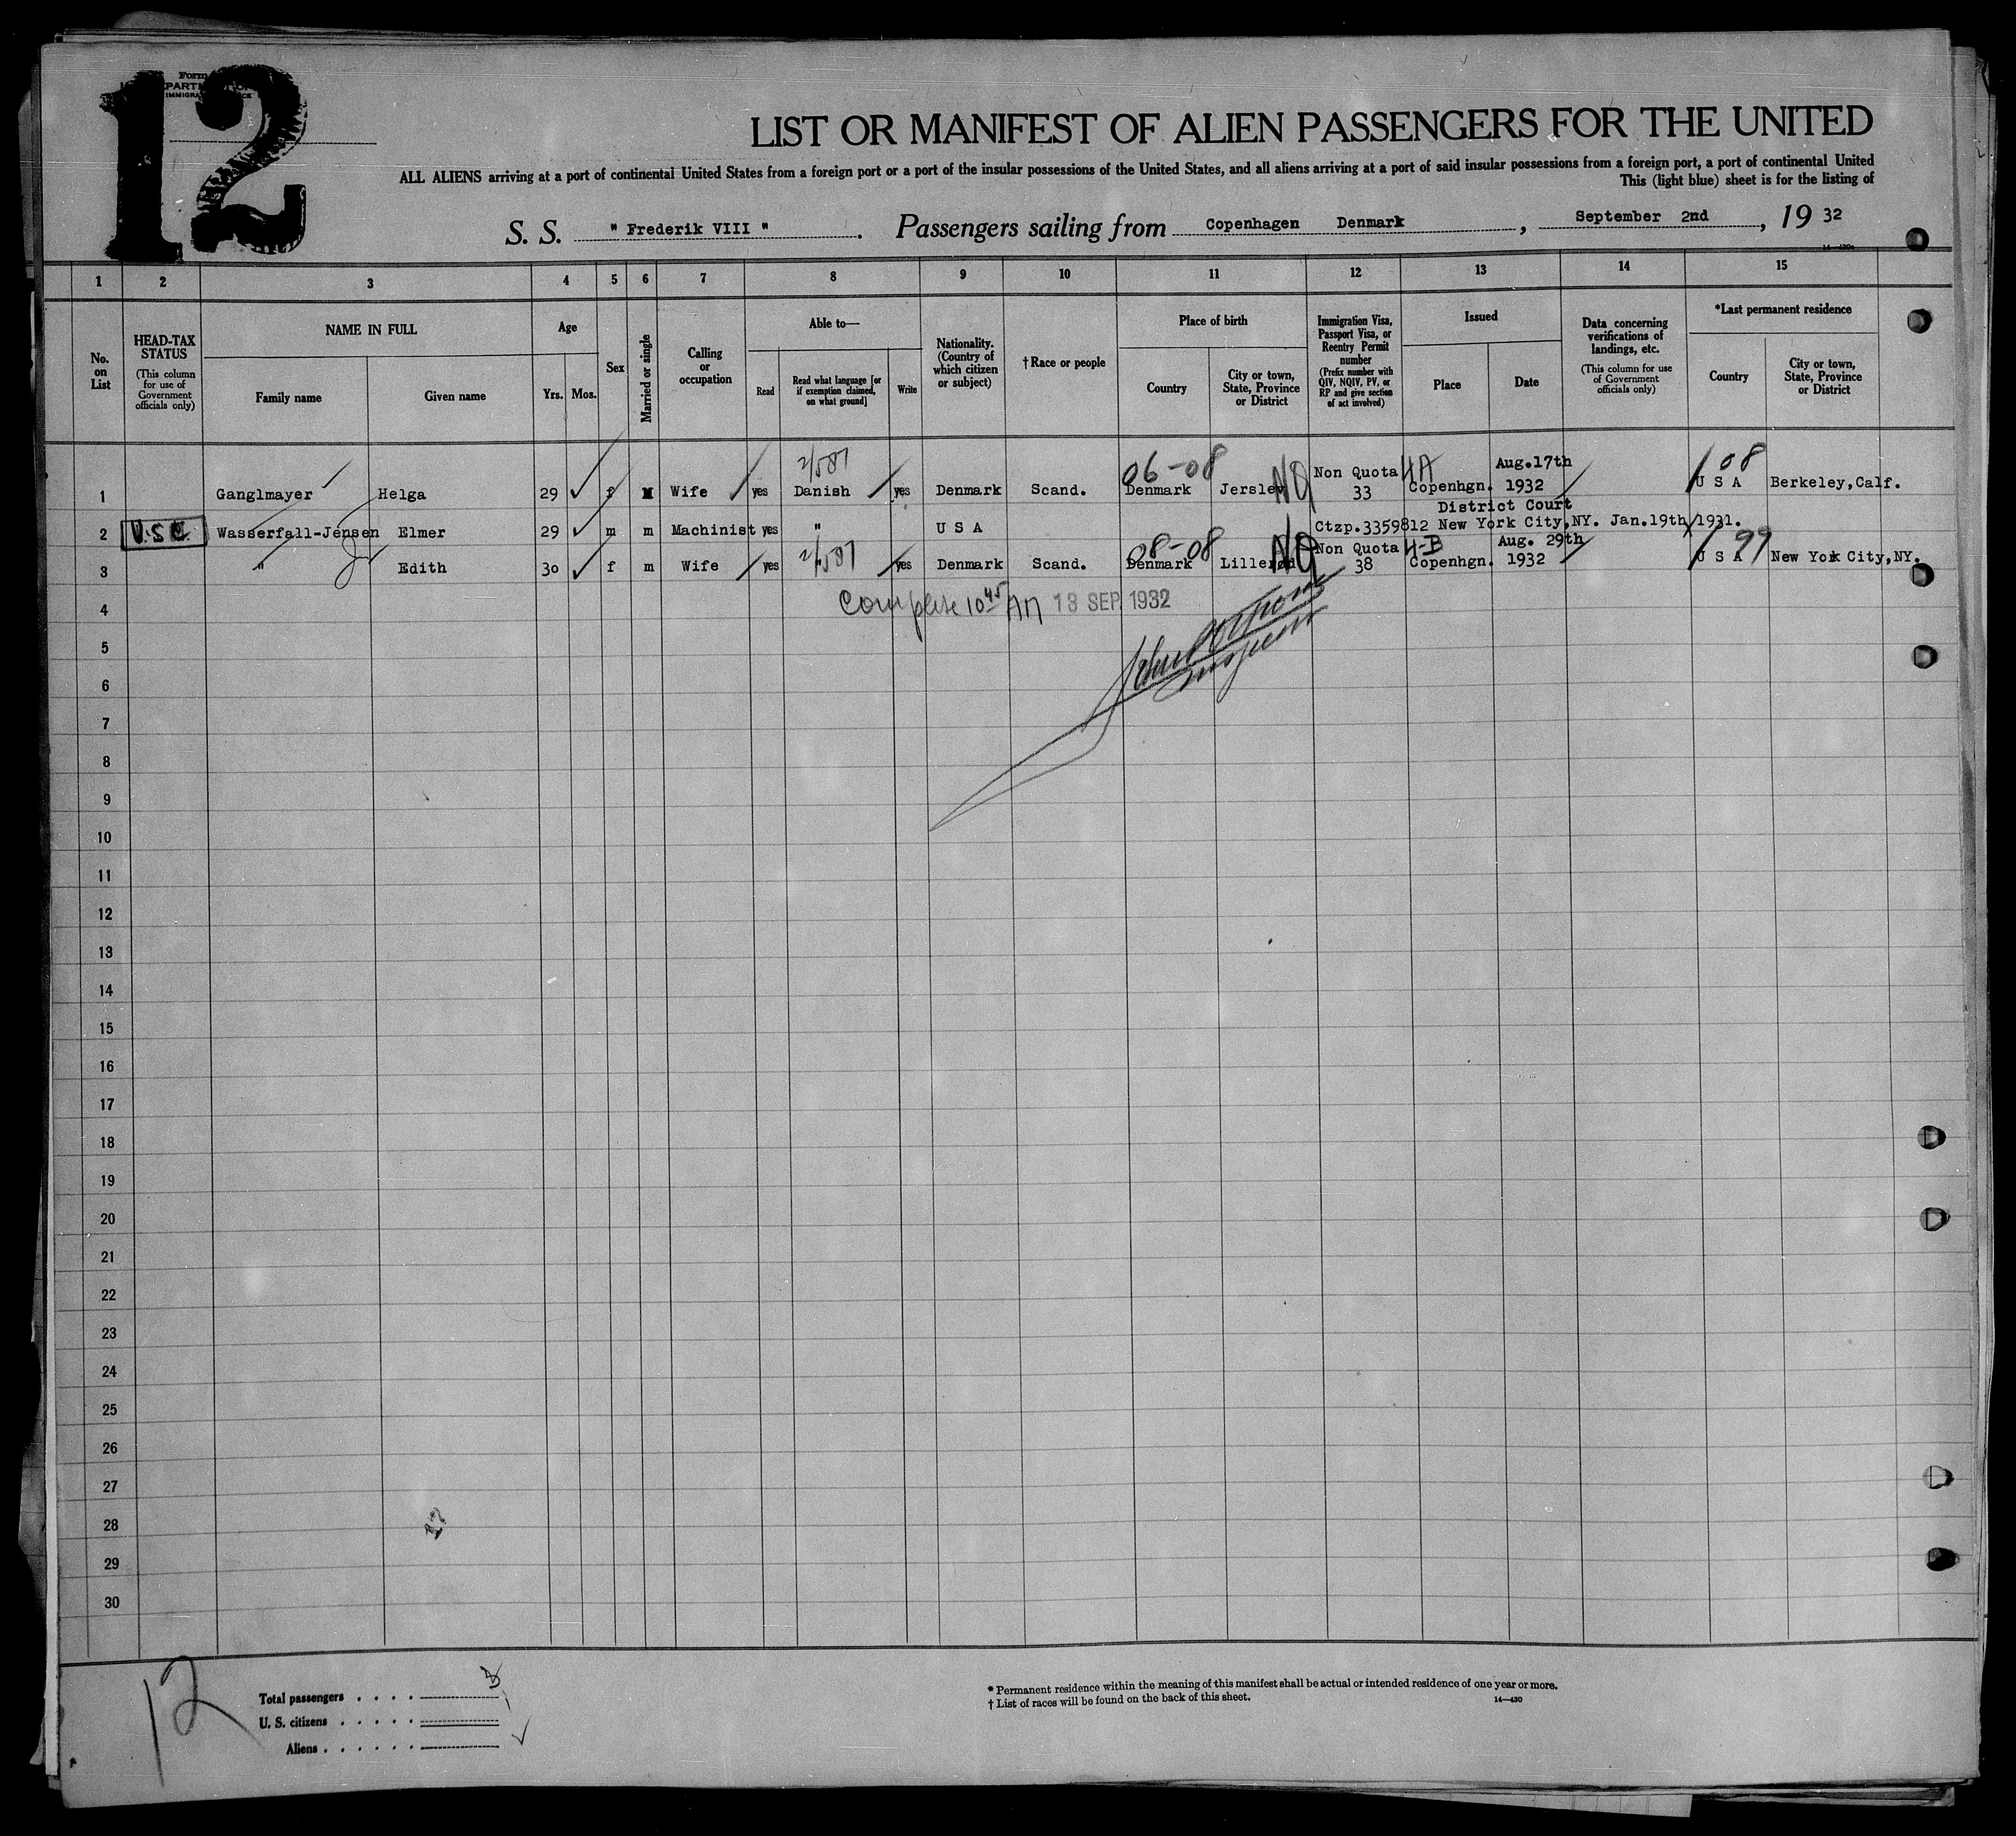 12
Form
IMMIGRA
LIST OR MANIFEST OF ALIEN PASSENGERS FOR THE UNITED
ALL ALIENS arriving at a port of continental United States from a foreign port or a port of the insular possessions of the United States, and all aliens arriving at a port of said insular possessions from a foreign port, a port of continental United
This (light blue) sheet is for the listing of
S. S. " Frederik VIII " . Passengers sailing from Copenhagen Denmark , September 2nd , 19 32
1 2 3 4 5 6 7 8 9 10 11 12 13 14 15
No. on List
HEAD-TAX STATUS
(This column for use of Government officials only)
NAME IN FULL
Family name
Given name
Age
Yrs. Mos.
Sex
Married or single
Calling or occupation
Able to—
Read
Read what language [or if exemption claimed, on what ground]
Write
Nationality. (Country of which citizen or subject)
† Race or people
Place of birth
Country
City or town, State, Province or District
Immigration Visa, Passport Visa, or Reentry Permit number
(Prefix number with QIV, NQIV, PV, or RP and give section of act involved)
Issued
Place
Date
Data concerning verifications of landings, etc.
(This column for use of Government officials only)
*Last permanent residence
Country
City or town, State, Province or District
2/587 06-08 4A Aug.17th 108
1 Ganglmayer Helga 29 f M Wife yes Danish yes Denmark Scand. Denmark Jerslev NQ Non Quota 33 Copenhgn. 1932 U S A Berkeley,Calf.
District Court
2 U.S.C. Wasserfall-Jensen Elmer 29 m m Machinist yes " U S A Ctzp.3359812 New York City,NY. Jan.19th 1931.
2/587 08-08 4-B Aug. 29th 199
3 " Edith 30 f m Wife yes " yes Denmark Scand. Denmark Lillerød NQ Non Quota 38 Copenhgn. 1932 U S A New York City,NY.
4 Complete 10 45 AM 13 SEP. 1932
5
6
7
8
9
10
11
12
13
14
15
16
17
18
19
20
21
22
23
24
25
26
27
28
29
30
12
Total passengers . . . . 3
U. S. citizens . . . . .
Aliens . . . . . .
* Permanent residence within the meaning of this manifest shall be actual or intended residence of one year or more.
† List of races will be found on the back of this sheet.
14—430